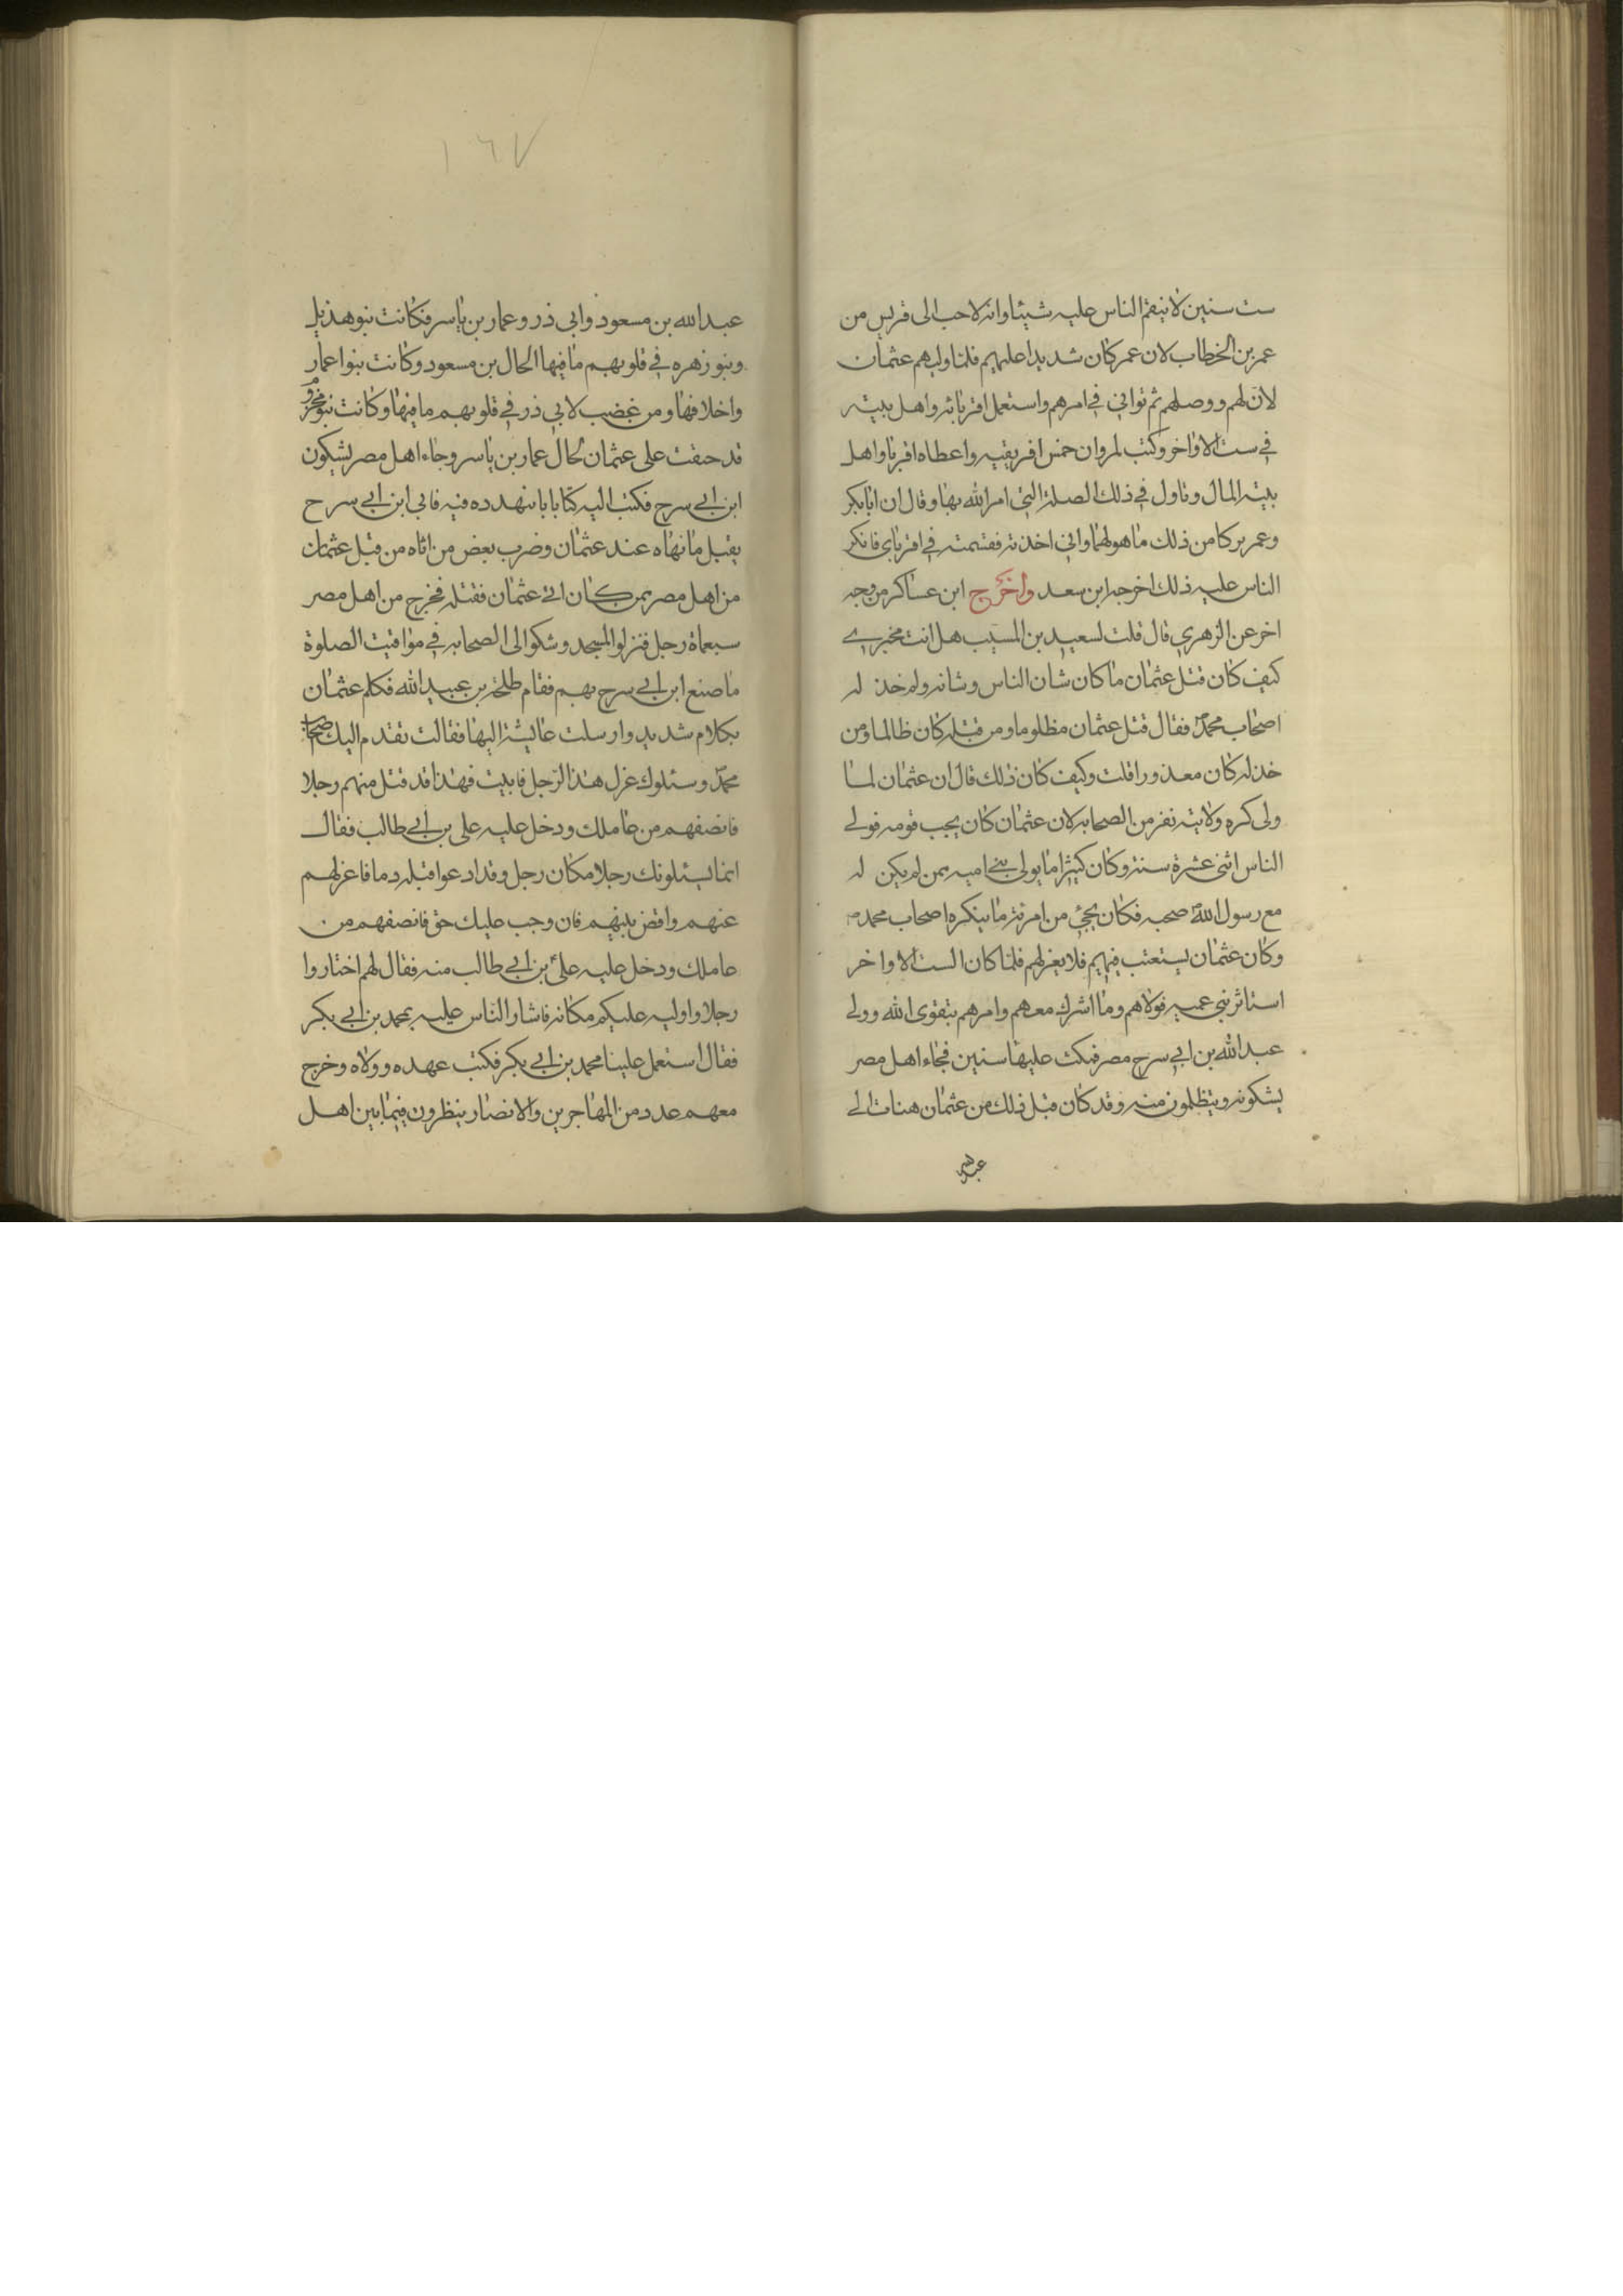 ست سنين لا ينقم الناس عليه شيئا وانه لاحب الى قريش من
عمر بن الخطاب لان عمر كان شديدا عليهم فلما وليهم عثمان
لان لهم ووصلهم ثم توانى في امرهم واستعمل اقرباثه واهل بيته
في ست الاواخر وكتب لمروان خمس افريقيه واعطاه اقربا واهل
بيته المال وتاول في ذلك الصلة التي امر الله بها وقال ان ابابكر
وعمر تركا من ذلك ما هو لهما واني اخذته فقسمته في اقرباي فانكر
الناس عليه ذلك اخرجه ابن سعد واخرج ابن عساكر من وجه
اخر عن الزهري قال قلت لسعيد بن المسيب هل انت مخبري
كيف كان قتل عثمان ما كان شان الناس وشانه ولم خذله
اصحاب محمد فقال قتل عثمان مظلوما ومن قتله كان ظالما ومن
خذله كان معذورا قلت وكيف كان ذلك قال ان عثمان لما
ولى كره ولايته نفر من الصحابه لان عثمان كان يحب قومه فولى
الناس اثنى عشرة سنة وكان كثيرا ما يولى بني اميه ممن لم يكن له
مع رسول الله صحبه فكان يجئ من امرئه ما ينكره اصحاب محمد
وكان عثمان يستعتب فيهم فلا يعزلهم فلما كان الست الاواخر
استاثر بني عميه فولاهم وما اشرك معهم وامرهم بتقوى الله وولى
عبد الله بن ابي سرح مصر فمكث عليها سنين فجاء اهل مصر
يشكونه ويتظلمون منه وقد كان قبل ذلك من عثمان هنات الى
عبد الله
١٦٧
عبد الله بن مسعود وابي ذر وعمار بن ياسر فكانت بنو هذيل
وبنو زهره في قلوبهم ما فيها الحال بن مسعود وكانت بنوا عمار
واخلافها ومن غضب لابي ذر في قلوبهم ما فيها وكانت بنو مخزوم
قد حنقت على عثمان لحال عمار بن ياسر وجاء اهل مصر يشكون
ابن ابي سرح فكتب اليه كتابا بايتهدده فيه فابى ابن ابي سرح
يقبل ما نهاه عند عثمان وضرب بعض من اتاه من قبل عثمان
من اهل مصر ممن كان اتى عثمان فقتله فخرج من اهل مصر
سبعماة رجل فنزلوا المسجد وشكوا الى الصحابه في مواقيت الصلوة
ما صنع ابن ابي سرح بهم فقام طلحة بن عبيد الله فكلم عثمان
بكلام شديد وارسلت عايشة اليها فقالت تقدم اليك اصحاب
محمد وسئلوك عزل هذا الرجل فابيت فهذا قد قتل منهم رجلا
فانصفهم من عاملك ودخل عليه على بن ابي طالب فقال
انما يسئلونك رجلا مكان رجل وقد ادعوا قبله دما فاعزلهم
عنهم واقض بينهم فان وجب عليك حق فانصفهم من
عاملك ودخل عليه على بن ابي طالب منه فقال لهم اختاروا
رجلا واوليه عليكم مكانه فاشار الناس عليه بمحمد بن ابي بكر
فقال استعمل علينا محمد بن ابي بكر فكتب عهده وولاه وخرج
معهم عدد من المهاجرين والانصار ينظرون فيما بين اهل